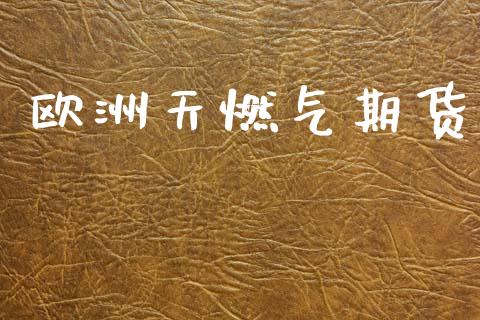 欧洲天燃气期货